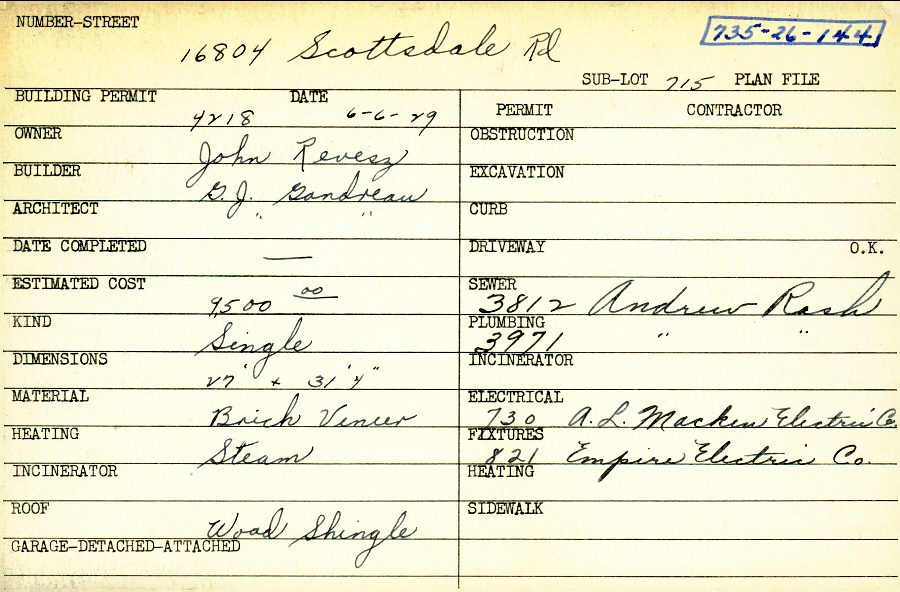 NUMBER-STREET
16804 Scottsdale Rd
735-26-144
SUB-LOT 715 PLAN FILE
BUILDING PERMIT DATE
4218 6-6-29
OWNER
John Revesz
BUILDER
G. J. Gondreau
ARCHITECT
" "
DATE COMPLETED
—
ESTIMATED COST
9500 00
KIND
Single
DIMENSIONS
27' x 31'4"
MATERIAL
Brick Veneer
HEATING
Steam
INCINERATOR
ROOF
Wood Shingle
GARAGE-DETACHED-ATTACHED
PERMIT CONTRACTOR
OBSTRUCTION
EXCAVATION
CURB
DRIVEWAY O.K.
SEWER
3812 Andrew Rash
PLUMBING
3971 " "
INCINERATOR
ELECTRICAL
730 A. L. Macken Electric Co.
FIXTURES
821 Empire Electric Co.
HEATING
SIDEWALK